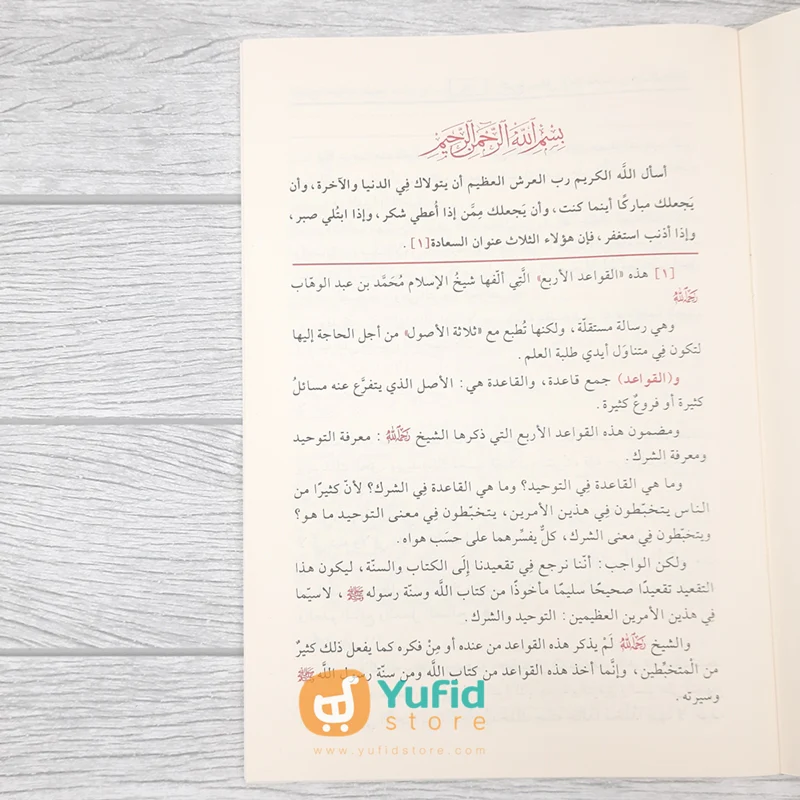 بِسْمِ ٱللَّهِ ٱلرَّحْمَٰنِ ٱلرَّحِيمِ
أسأل اللَّه الكريم رب العرش العظيم أن يتولاك فِي الدنيا والآخرة، وأن
يَجعلك مباركًا أينما كنت، وأن يَجعلك مِمَّن إذا أُعطي شكر، وإذا ابتُلي صبر،
وإذا أذنب استغفر، فإن هؤلاء الثلاث عنوان السعادة[١].
[١] هذه «القواعد الأربع» الَّتِي ألّفها شيخُ الإسلام مُحَمَّد بن عبد الوهّاب
رَحِمَهُ اللَّهُ
وهي رسالة مستقلّة، ولكنها تُطبع مع «ثلاثة الأصول» من أجل الحاجة إليها
لتكون فِي متناوَل أيدي طلبة العلم.
و(القواعد) جمع قاعدة، والقاعدة هي: الأصل الذي يتفرَّع عنه مسائلُ
كثيرة أو فروعٌ كثيرة.
ومضمون هذه القواعد الأربع التي ذكرها الشيخ رَحِمَهُ اللَّهُ: معرفة التوحيد
ومعرفة الشرك.
وما هي القاعدة فِي التوحيد؟ وما هي القاعدة فِي الشرك؟ لأنّ كثيرًا من
الناس يتخبّطون فِي هذين الأمرين، يتخبّطون فِي معنى التوحيد ما هو؟
ويتخبّطون فِي معنى الشرك، كلٌّ يفسِّرهما على حسَب هواه.
ولكن الواجب: أنّنا نرجع فِي تقعيدنا إلَى الكتاب والسنّة، ليكون هذا
التقعيد تقعيدًا صحيحًا سليمًا مأخوذًا من كتاب اللَّه وسنّة رسوله ﷺ، لاسيّما
فِي هذين الأمرين العظيمين: التوحيد والشرك.
والشيخ رَحِمَهُ اللَّهُ لَمْ يذكر هذه القواعد من عنده أو مِنْ فكره كما يفعل ذلك كثيرٌ
من الْمتخبِّطين، وإنَّما أخذ هذه القواعد من كتاب اللَّه ومن سنّة رسول اللَّه ﷺ
وسيرته.
Yufid
store
www.yufidstore.com